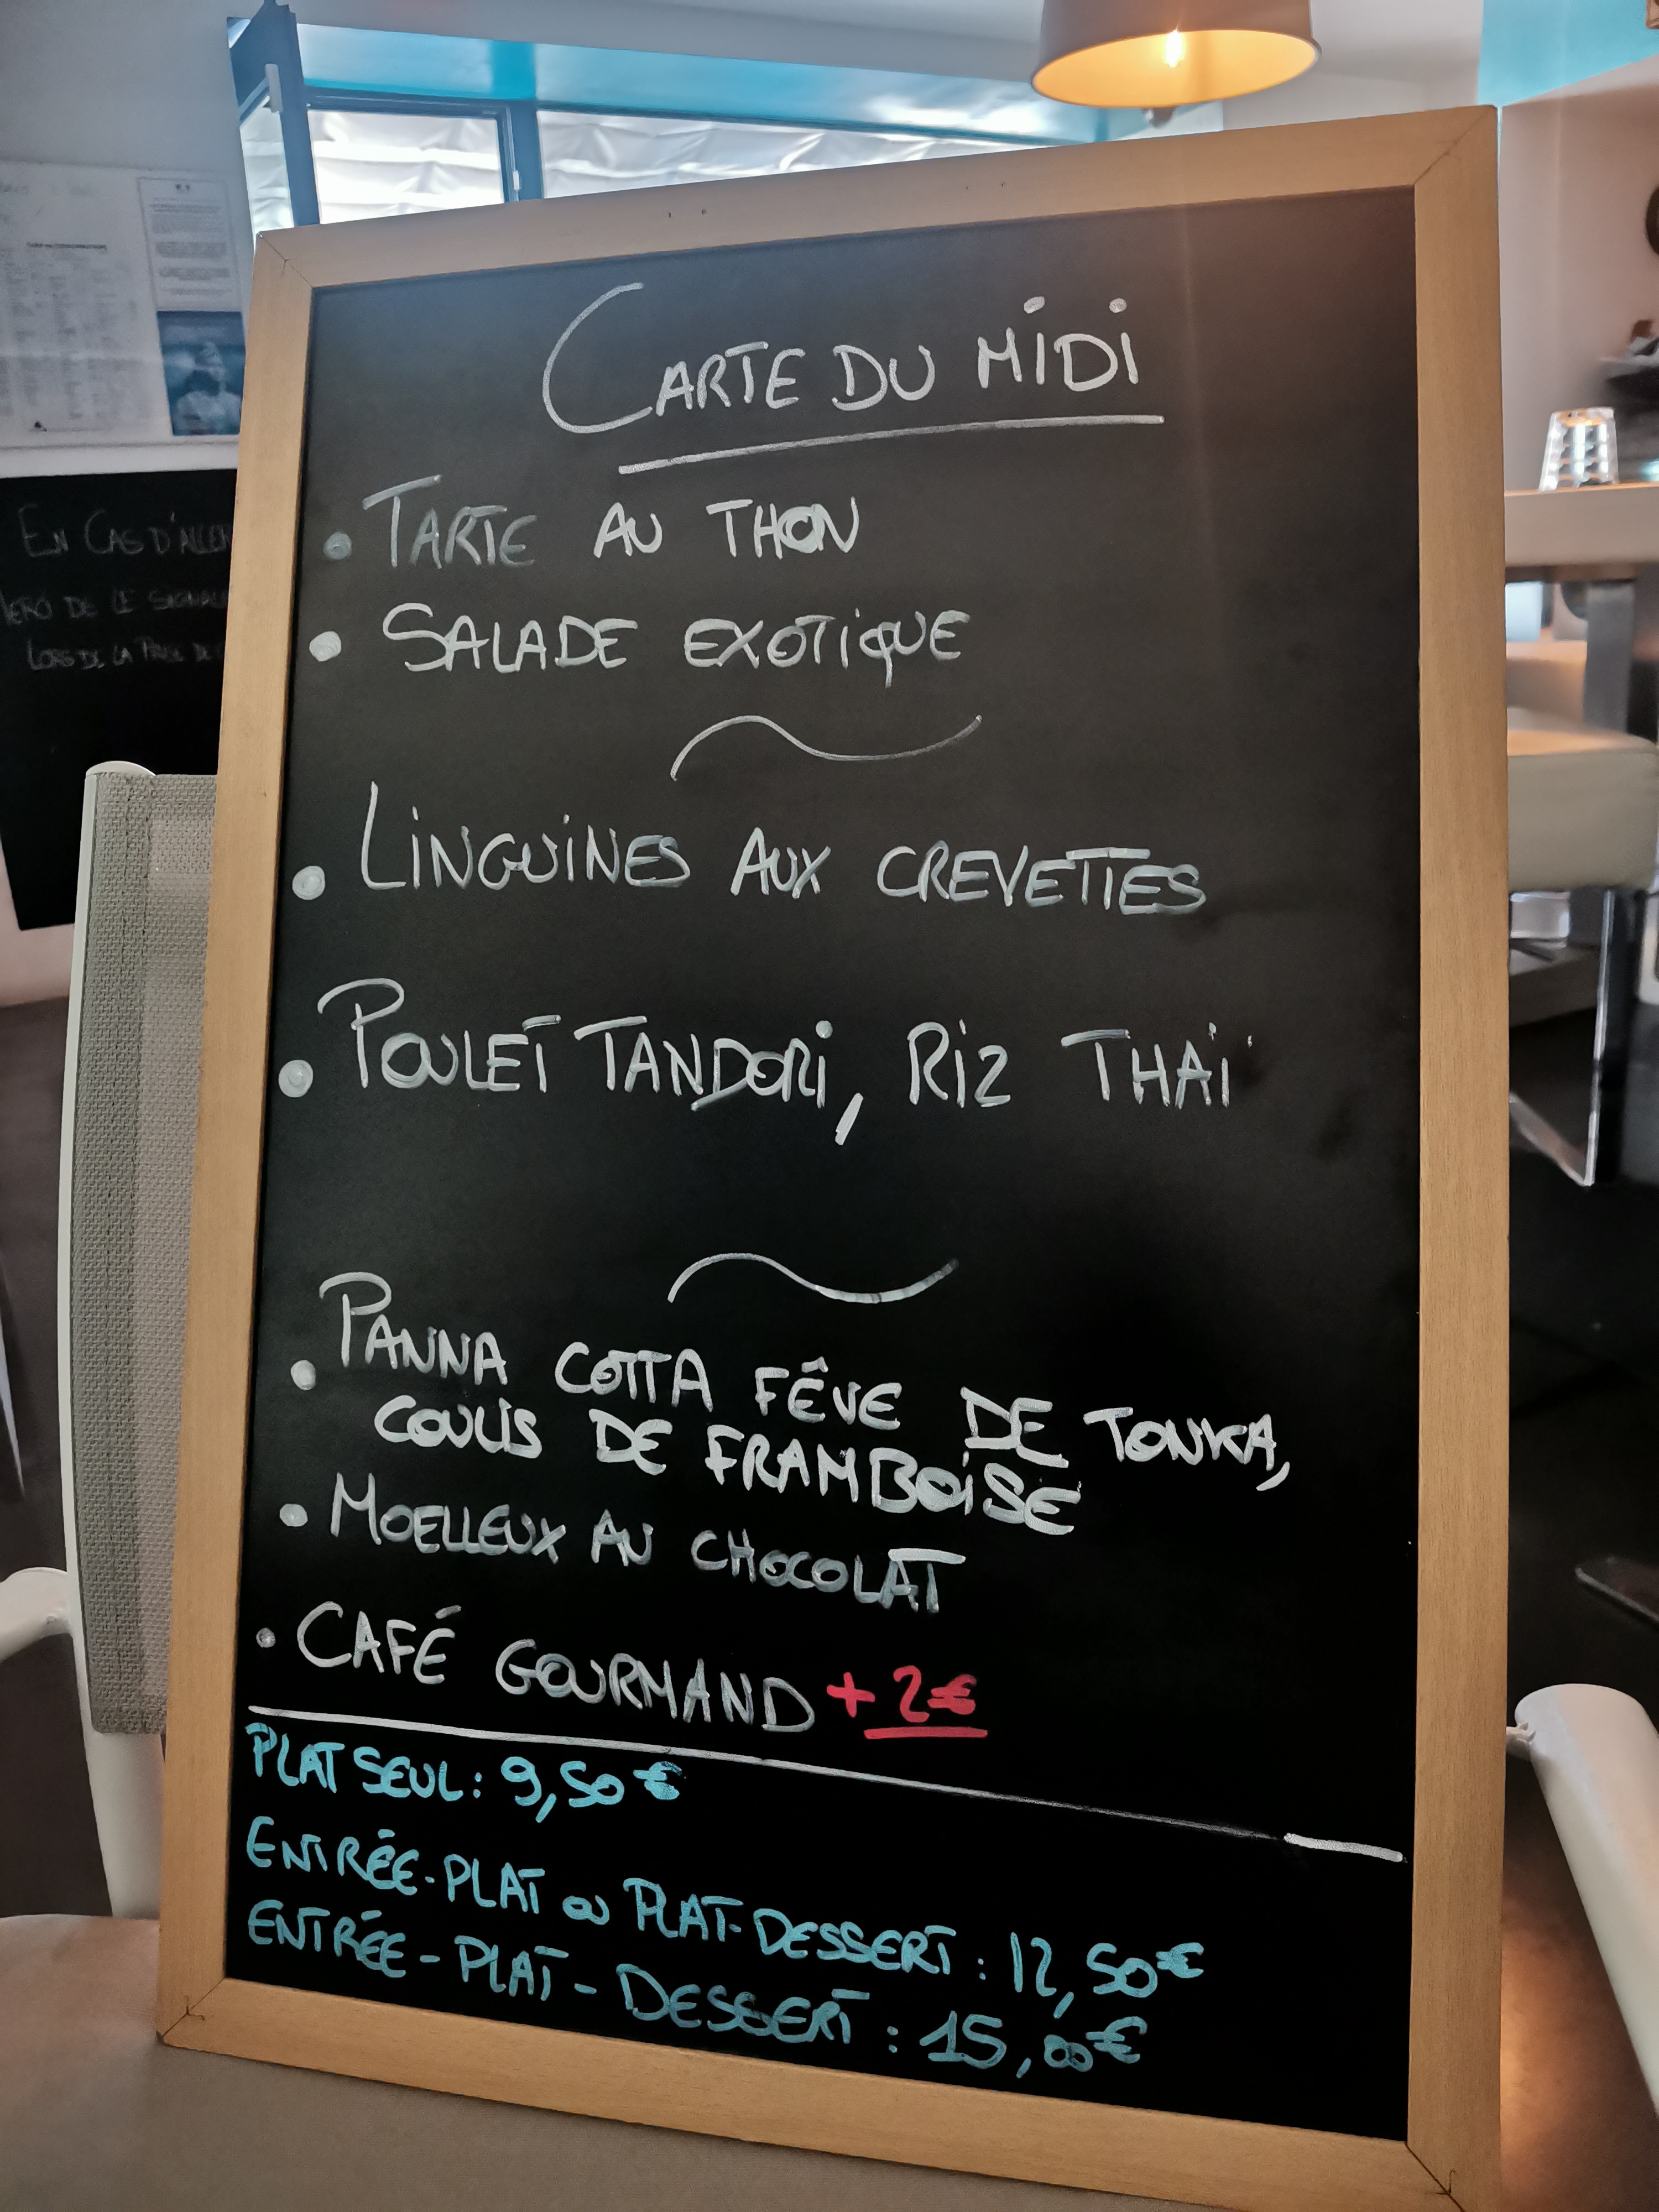 CARTE DU MIDI
• TARTE AU THON
• SALADE EXOTIQUE
• LINGUINES AUX CREVETTES
• POULET TANDORI, RIZ THAÏ
• PANNA COTTA FÊVE DE TONKA,
COULIS DE FRAMBOISE
• MOELLEUX AU CHOCOLAT
• CAFÉ GOURMAND + 2€
PLAT SEUL : 9,50€
ENTRÉE-PLAT ou PLAT-DESSERT : 12,50€
ENTRÉE-PLAT-DESSERT : 15,00€
EN CAS D'ALLER
DE LE SIGNAL
LORS DE LA PRISE DE